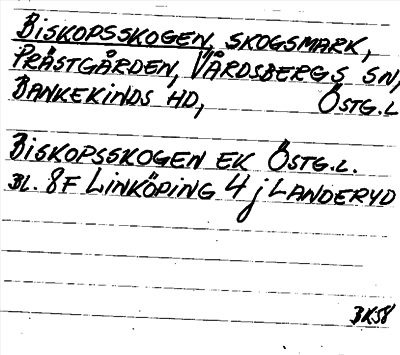 BISKOPSSKOGEN, SKOGSMARK,
PRÄSTGÅRDEN, VÅRDSBERGS SN,
BANKEKINDS HD, ÖSTG.L
BISKOPSSKOGEN EK ÖSTG.L.
BL. 8F LINKÖPING 4j LANDERYD
BK58